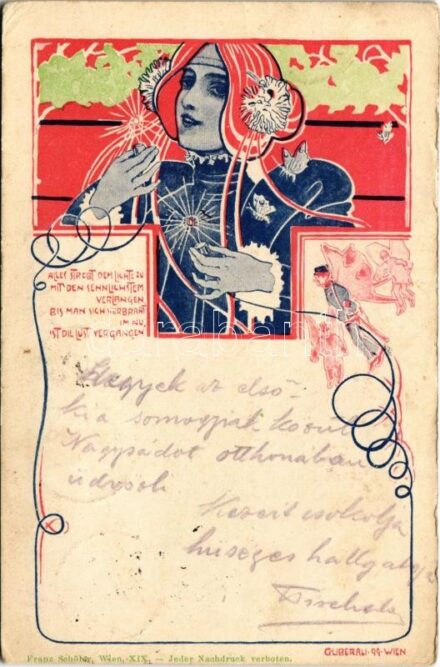 ALLES STREBT DEM LICHTE ZU
MIT DEN SEHNLICHSTEM
VERLANGEN
BIS MAN SICH VERBRANT
IM NU,
IST DIE LUST VERGANGEN
Hagyjek az első
ki a somogyiak közül
Nagyságdot otthonában
üdvözli
Kezeit csokolja
hűséges hallgatója
K
GUBERALI-99-WIEN
Franz Schüler, Wien, XIX. — Jeder Nachdruck verboten.